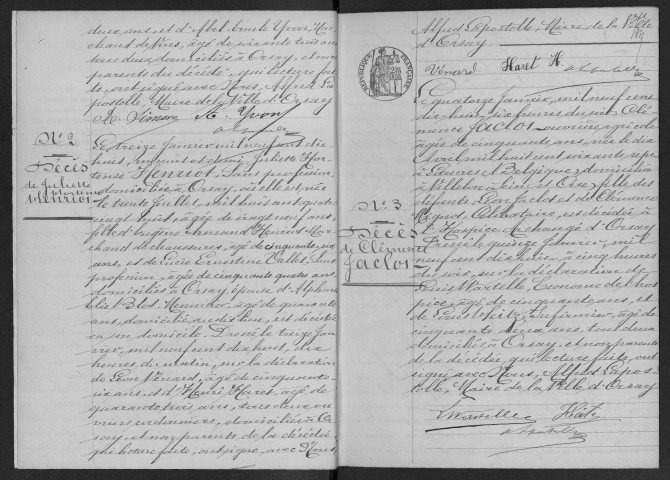 deux ans, et d'Abel Emile Yvon, Mar-
chand de Vins, âgé de soixante trois ans
tous deux domiciliés à Orsay, et non
parents du décédé, qui lecture fai-
te, ont signé avec Nous, Alfred La-
postolle, Maire de la Ville d'Orsay
A. Simon A. Yvon
N° 2
Décès
de Juliette
Hortense
Henriot
Le treize Janvier mil neuf cent dix
huit, minuit et demi, Juliette Hor-
tense Henriot, sans profession,
domiciliée à Orsay, où elle est née
le trente Juillet, mil huit cent quatre
vingt huit, âgée de vingt neuf ans,
fille d'Eugène Armand Henriot, Mar-
chand de chaussures, âgé de cinquante six
ans, et de Lucie Ernestine sans
profession, âgée de cinquante quatre ans,
domiciliés à Orsay, épouse d'Alphonse
Elie Blot, Menuisier, âgé de quarante
ans, domicilié au dit lieu, est décédée
en son domicile. Dressé le treize Jan-
vier, mil neuf cent dix huit, dix
heures du matin, sur la déclaration
de Léon Vénard, âgé de cinquante
six ans, et d'Henri Haret, âgé de
quarante trois ans, tous deux ou-
vriers urdinniers, domiciliés à Or-
say, et non parents de la décédée,
qui lecture faite, ont signé, avec Nous,
Alfred Lapostolle, Maire de la Ville
d'Orsay.
RÉPUBLIQUE FRANÇAISE
Vénard Haret H.
N° 3
Décès
de Clémence
Jaclot
Le quatorze Janvier, mil neuf cent
dix huit, six heures du soir, Clé-
mence Jaclot, ouvrière agricole
âgée de cinquante ans, née le dix
Avril, mil huit cent soixante sept
à Belgique, domiciliée
à Villebon, Seine et Oise, fille des
défunts Léon Jaclot et de Clémence
Mignot, Célibataire, est décédée à
l'Hospice Archangé d'Orsay
Dressé le quinze Janvier, mil
neuf cent dix huit, à cinq heures
du soir, sur la déclaration de
Louis Wartelle, Econome de l'hos-
pice, âgé de cinquante ans, et
de infirmier, âgé de
cinquante deux ans, tous deux
domiciliés à Orsay, et non parents
de la décédée, qui lecture faite, ont
signé avec Nous, Alfred Lapos-
tolle, Maire de la Ville d'Orsay
L Wartelle